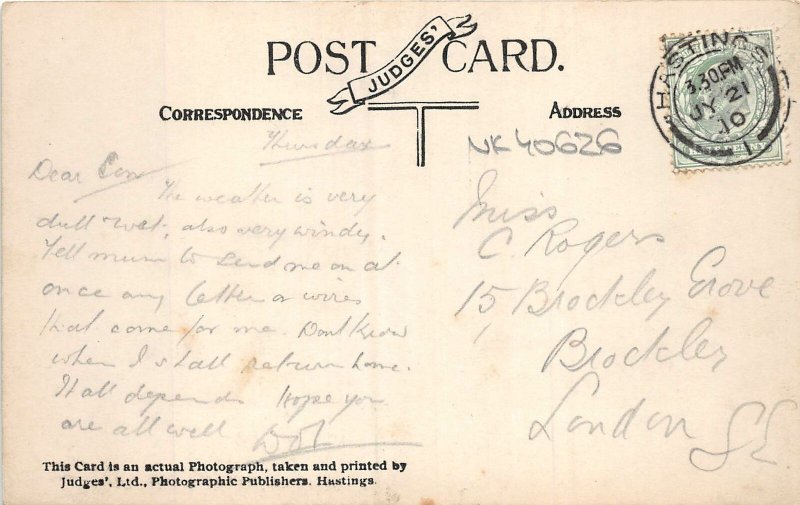 POST CARD.
JUDGES'
CORRESPONDENCE
ADDRESS
HASTINGS
3.30PM
JY 21
10
NK40626
Thursday
Dear Con
The weather is very
dull & wet, also very windy.
Tell mum to send me on at
once any letters or wires
that come for me. Dont know
when I shall return home.
It all depends Hope you
are all well
Miss
C. Rogers
15, Brockley Grove
Brockley
London SE
This Card is an actual Photograph, taken and printed by
Judges', Ltd., Photographic Publishers. Hastings.